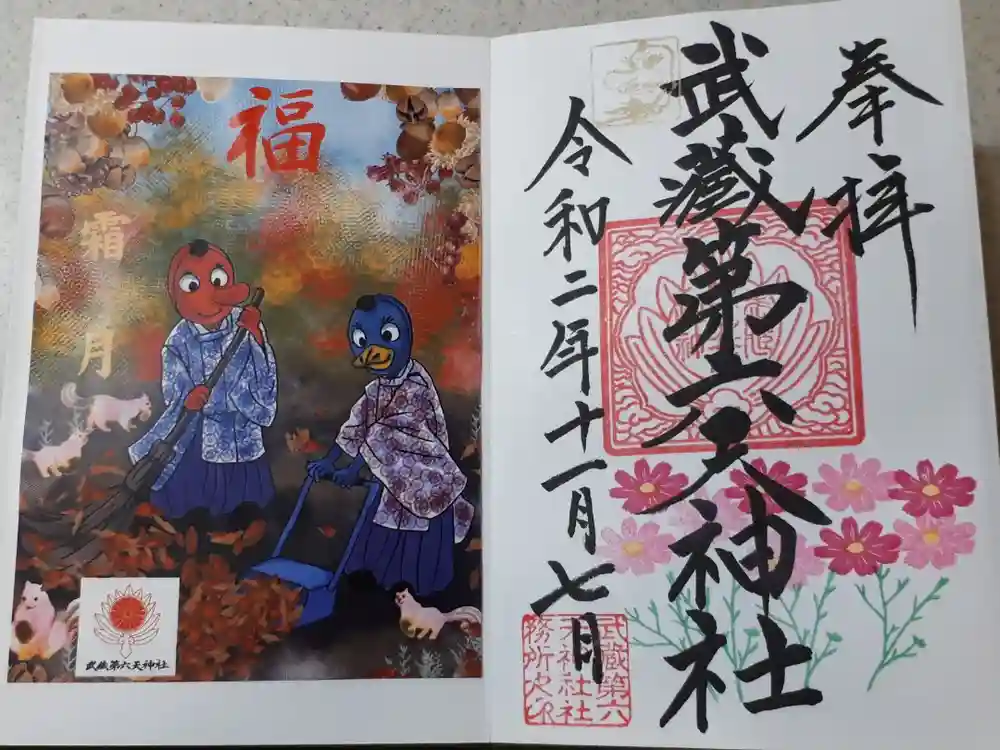 奉拝
武蔵第六天神社
令和二年十一月七月
武蔵第六
天神社社
務所之印
福
霜月
武蔵第六天神社